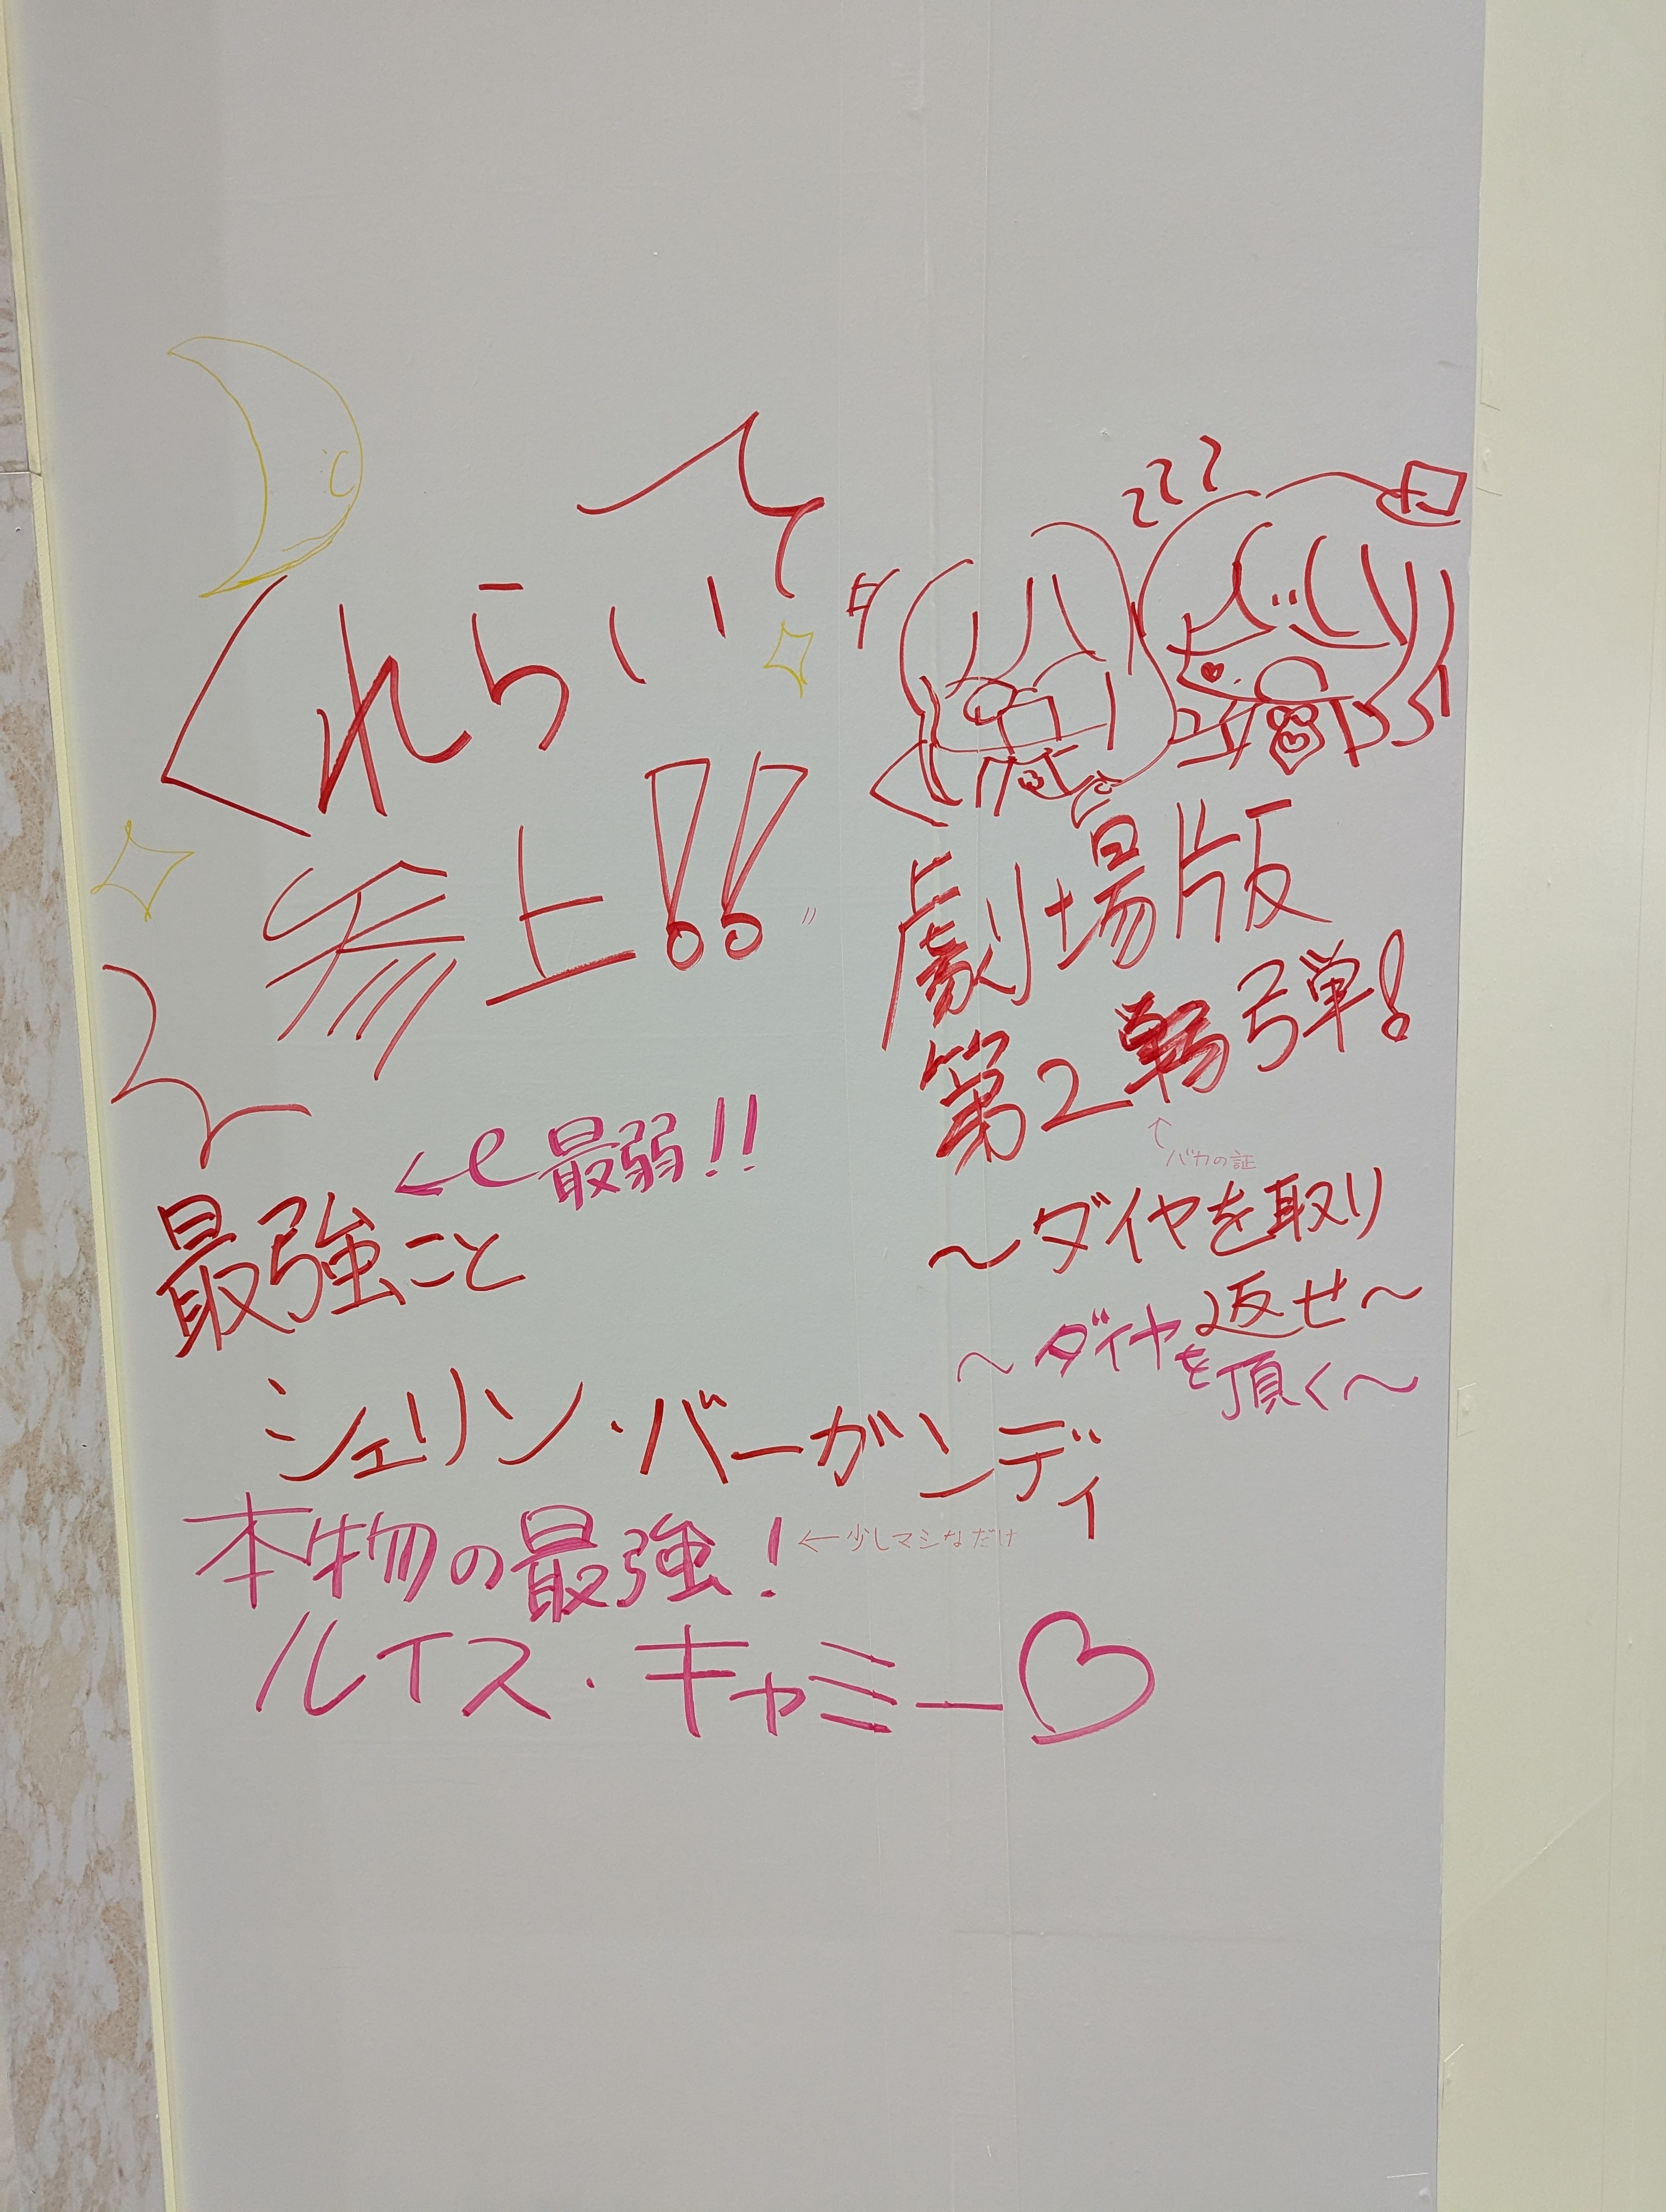 くれらい
参上!!
←最弱!!
最強こと
シェリン・バーガンディ
本物の最強!
←少しマシなだけ
ルイス・キャミー♡
zzz
劇場版
第2弾!
↑バカの証
〜ダイヤを取り
返せ〜
〜ダイヤを頂く〜